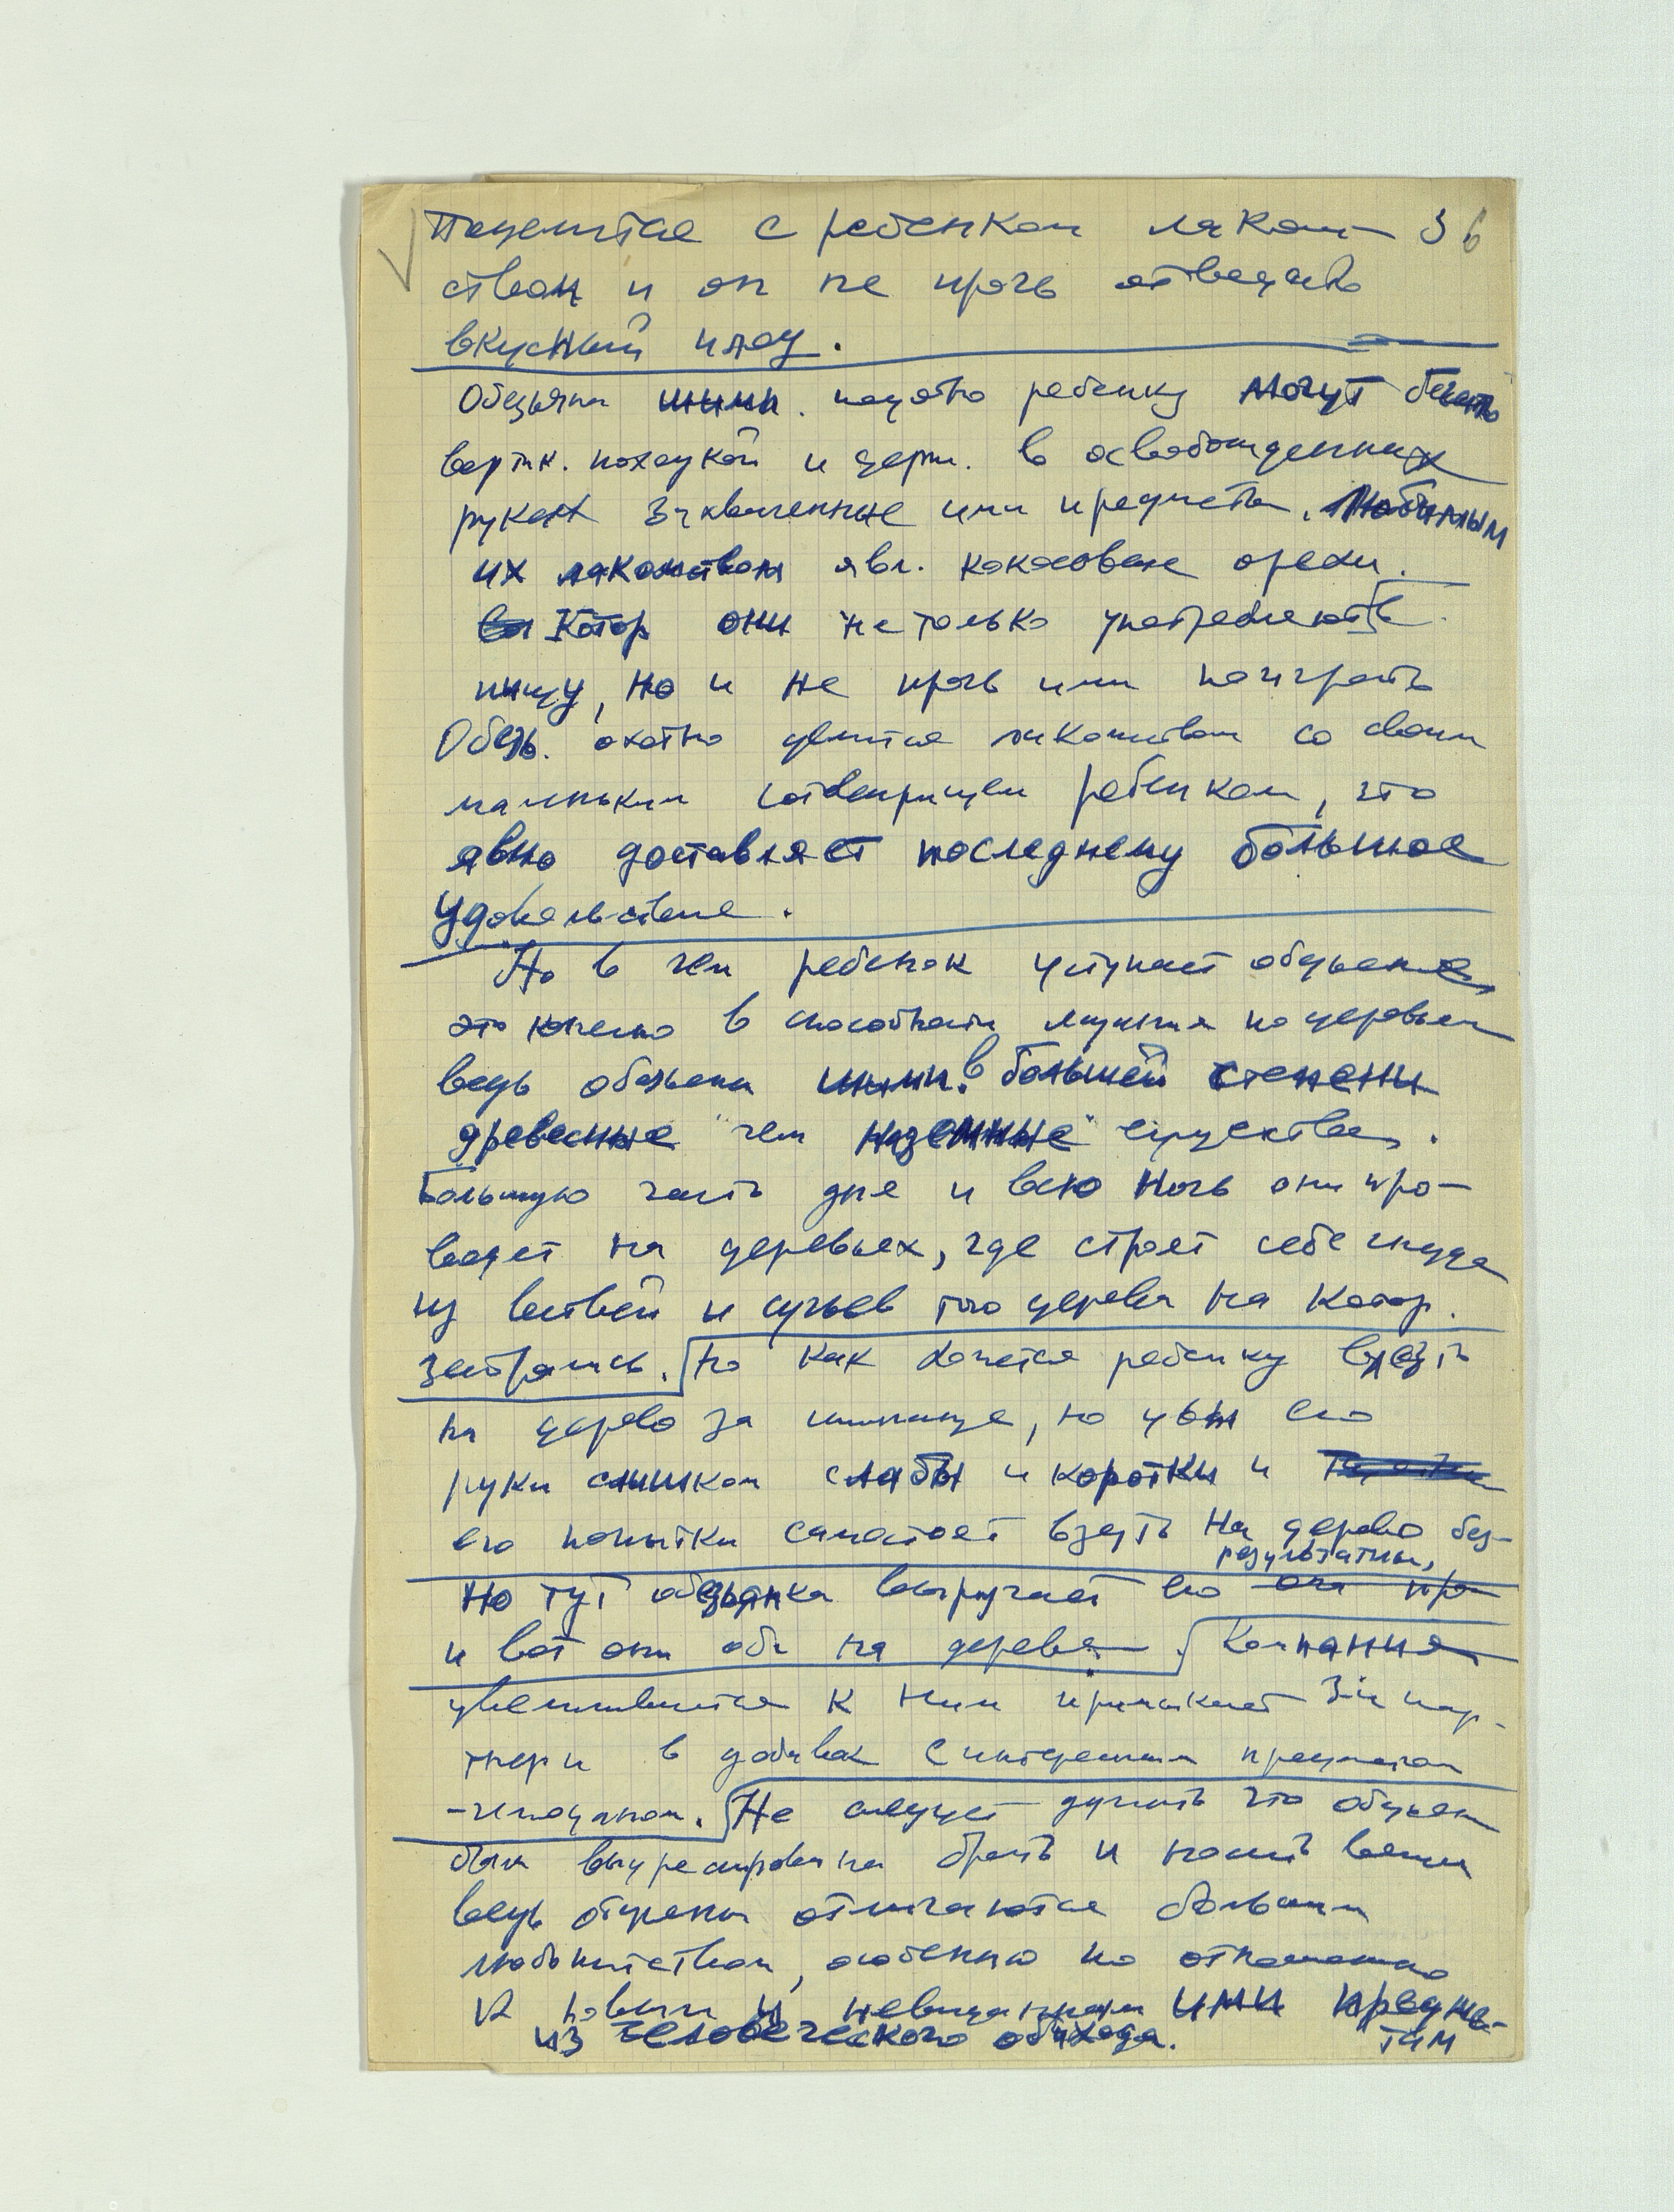 Поделится с ребенком лаком- 36
ством и он не прочь отведать
вкусный плод.
Обезьяны шимп. подобно ребенку могут бегать
вертик. походкой и держ. в освобожденных
руках захваченные ими предметы. Любимым
их лакомством явл. кокосовые орехи.
Котор они не только употребляют в
пищу, но и не прочь ими поиграть
Обезь. охотно делится лакомством со своим
маленьким товарищем ребенком, что
явно доставляет последнему большое
удовольствие.
Но в чем ребенок уступает обезьяне,
это конечно в способности лазания по деревьям
ведь обезьяны шимп. в большей степени
"древесные" чем "наземные" существа.
Большую часть дня и всю ночь они про-
водят на деревьях, где строят себе гнезда
из ветвей и сучьев того дерева на котор.
забрались. Но как хочется ребенку влезть
на дерево за шимпанзе, но увы его
руки слишком слабы и коротки и
его попытки самостоят взлезть на дерево без-
результатны,
Но тут обезьянка выручает его она при
и вот они оба на дереве. Компания
увеличивается к ним примыкает 3-ий пар-
тнер и в добавок с интересным предметом
-чемоданом. Не следует думать что обезьян
были выдрессированы брать и носить вещи
ведь обезьяны отличаются большим
любопытством, особенно по отношению
к новым и невиданным ими предме-
там
из человеческого обихода.